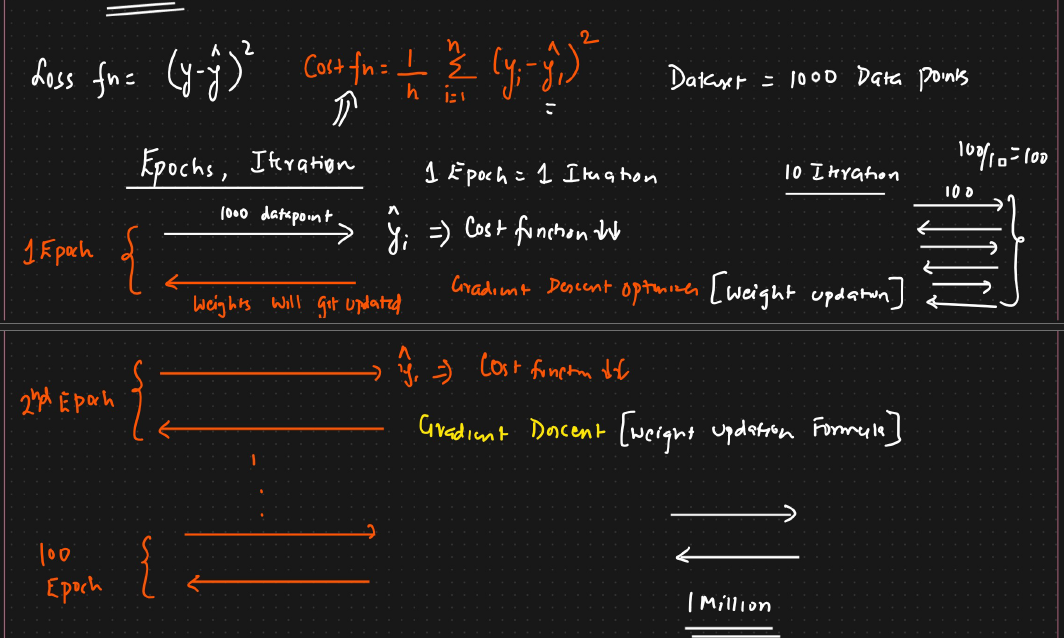 Loss fn = (y-ŷ)² Cost fn = 1/n Σ i=1 n (yi-ŷi)² Dataset = 1000 Data points
Epochs, Iteration 1 Epoch = 1 Iteration 10 Iteration 100/10=100
1000 datapoint ŷi ⇒ Cost function ↓↓ 100
1 Epoch
Weights will get updated Gradient Descent optimizer [Weight updation]
2nd Epoch ŷi ⇒ Cost function ↓↓
Gradient Descent [Weight updation Formula]
100
Epoch
1 Million